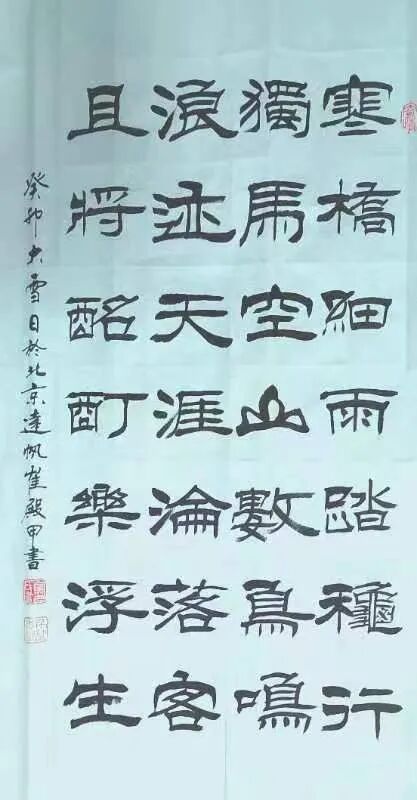 寒橋細雨踏穐行
獨馬空山數鳥鳴
浪迹天涯淪落客
且將酩酊樂浮生
癸卯大雪日於北京遠帆崔殿甲書